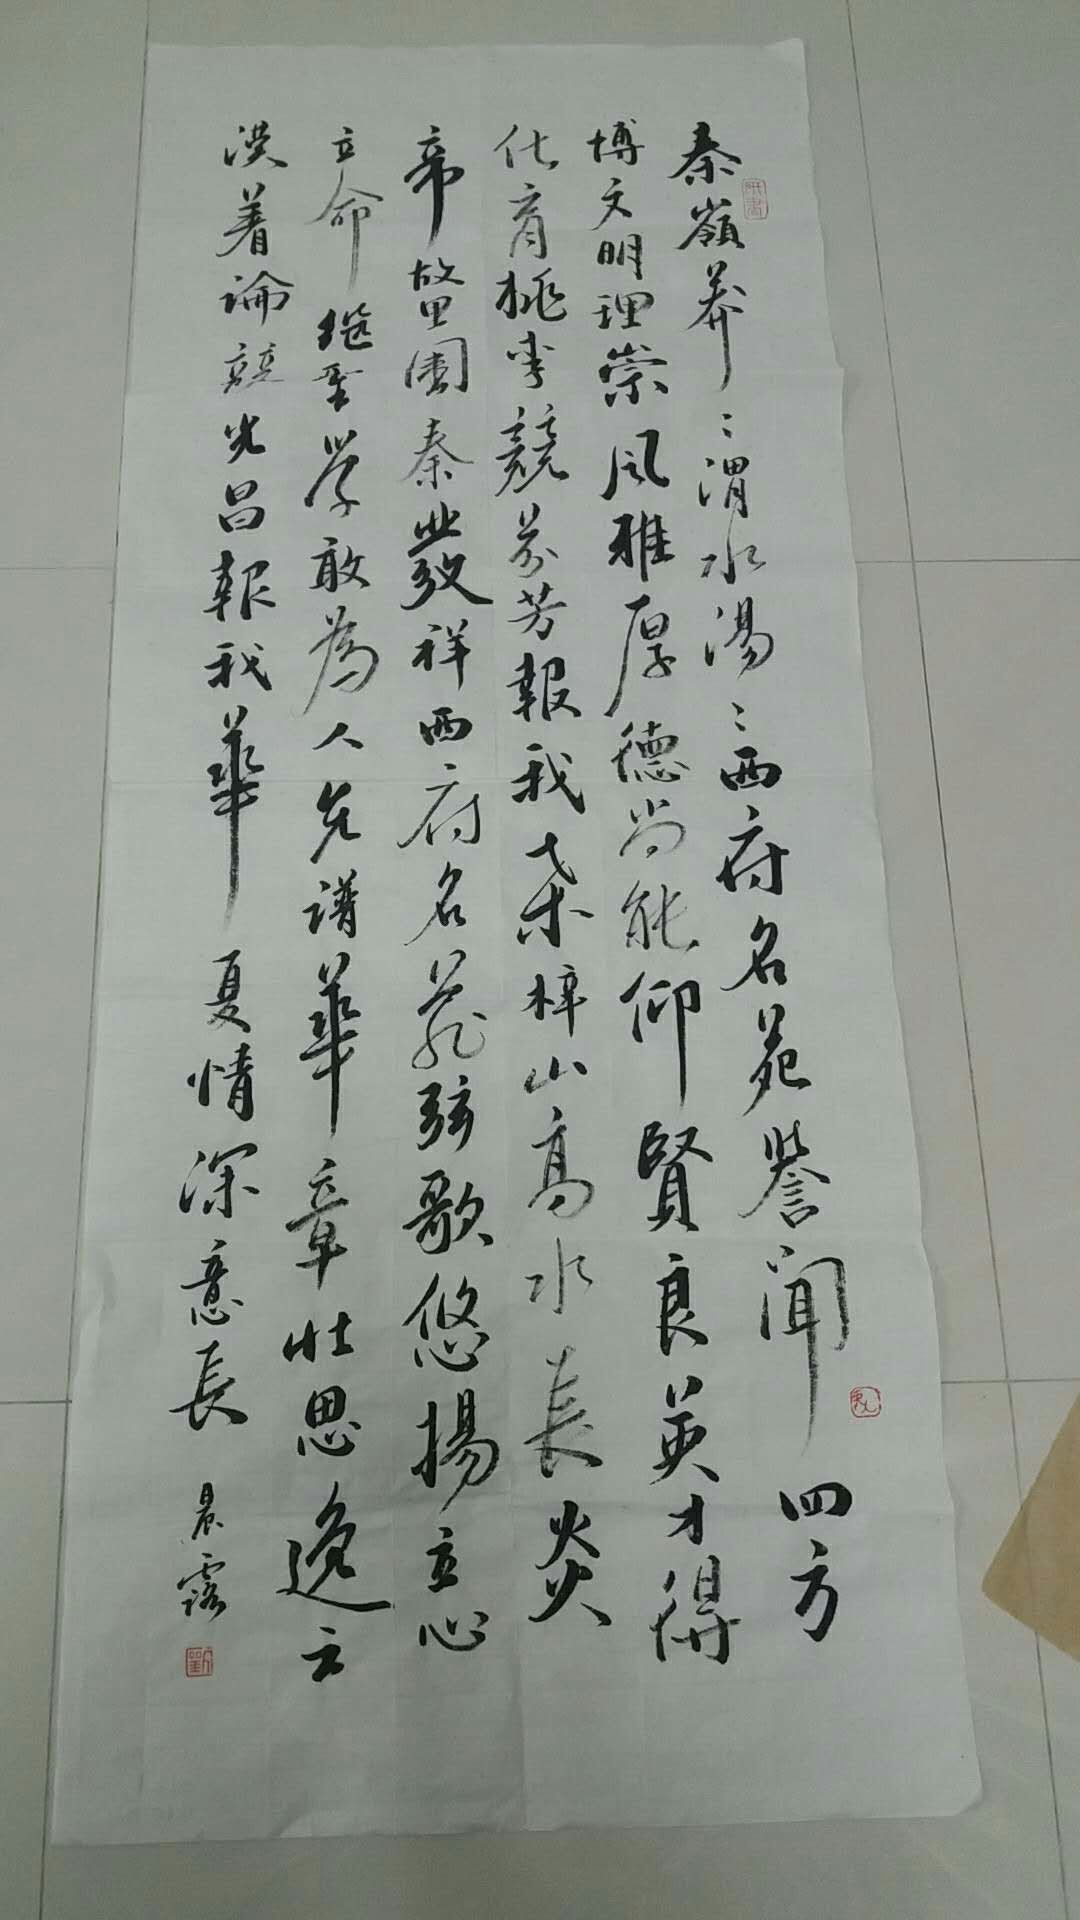 秦嶺莽〻渭水湯〻西府名苑譽聞四方
博文明理崇風雅厚德尚能仰賢良英才得
化育桃李競芬芳報我桑梓山高水長炎
帝故里園秦業發祥西府名苑弦歌悠揚立心
立命繼聖學敢為人先譜華章壯思逸云
洪着論競光昌報我華夏情深意長
晨露